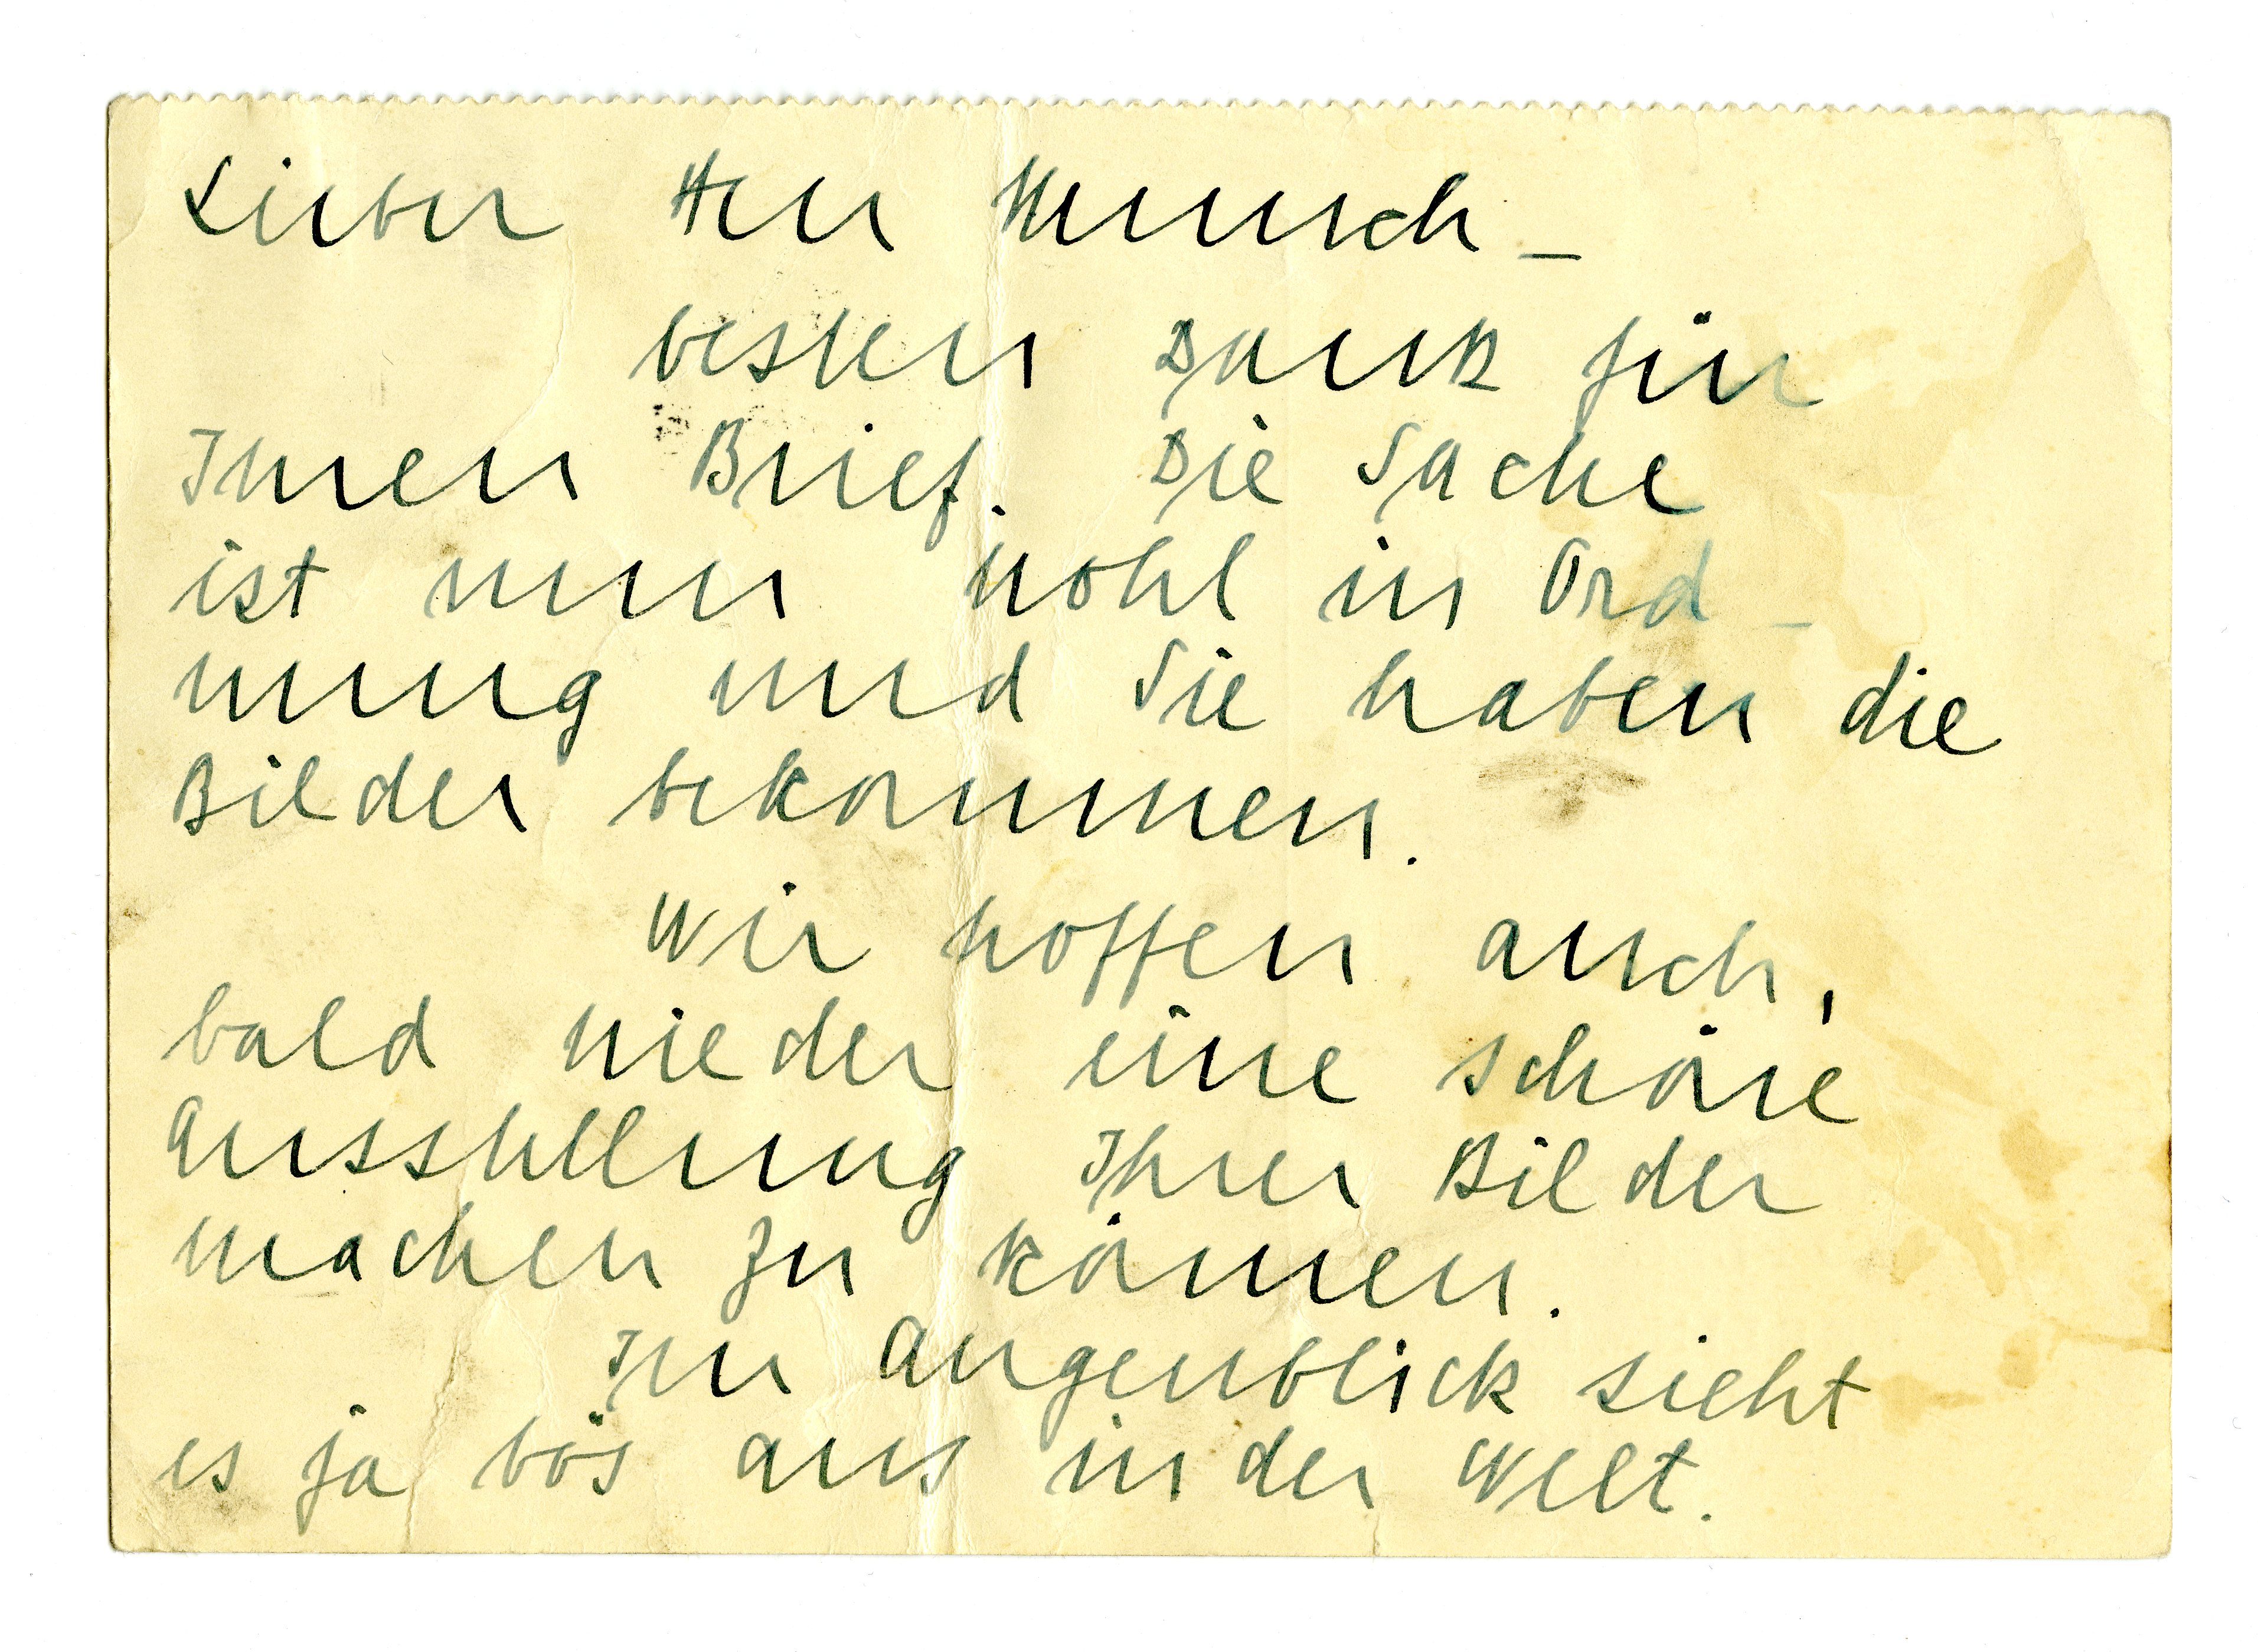 Lieber Herr –
besten Dank für
Ihren Brief. Die Sache
ist nun wohl in Ord-
nung und Sie haben die
Bilder bekommen.
Wir hoffen auch,
bald wieder eine schöne
Ausstellung Ihrer Bilder
machen zu können.
Im Augenblick sieht
es ja bös aus in der Welt.